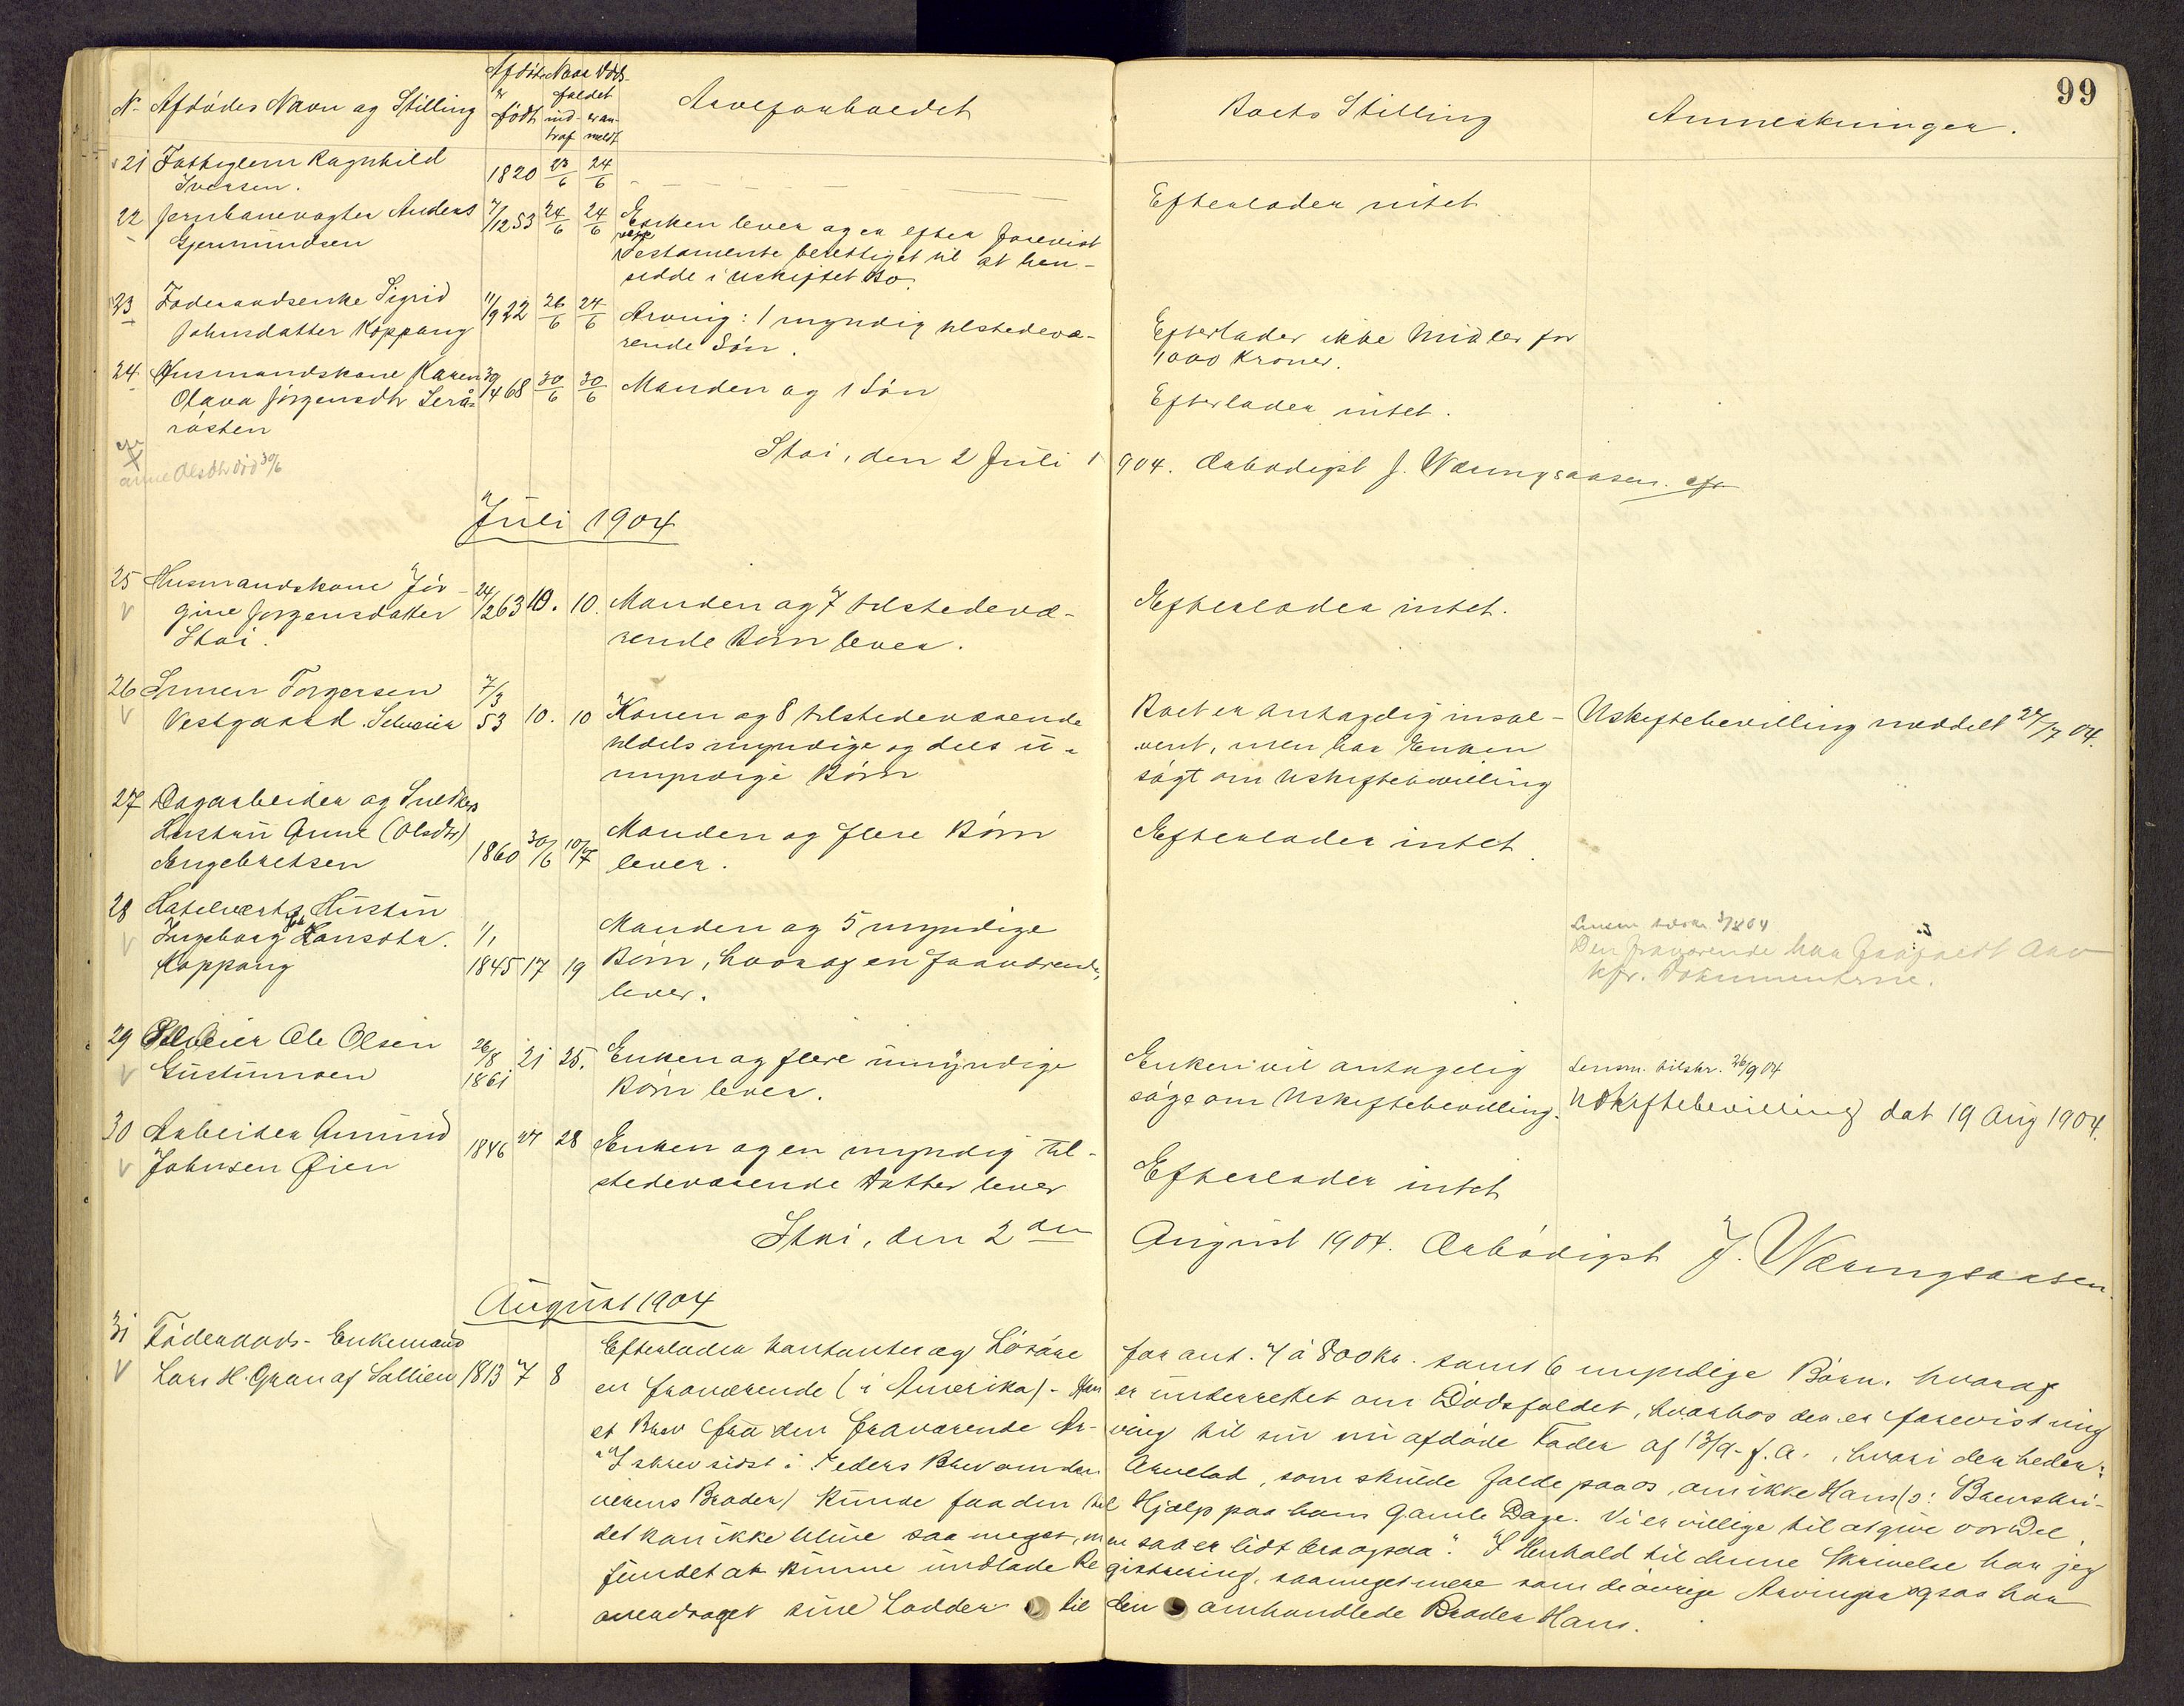 99
Nr Afdødes Navn og Stilling Afdøde er født Naar Dødsfaldet indtraf er anmeldt Arveforholdet Boets Stilling Anmerkninger.
21 Fattiglem Ragnhild 1820 23/6 24/6
Iversen. Efterlader intet
22 Jernbanevogter Anders 7/12 53 24/6 24/6 Enken lever og er efter forevist
Gjermundsen Testamente berettiget til at hen-
sidde i uskiftet Bo.
23 Føderaadsenke Sigrid 11/9 22 26/6 24/6 Arving: 1 myndig tilstedevæ- Efterlader ikke Midler for
Johnsdatter Koppang rende Søn. 1000 Kroner.
24 Husmandskone Karen 30/4 68 30/6 30/6 Manden og 1 Søn Efterlader intet.
Olava Jørgensdtr
røsten
Anne Olsdtr død 30/6
Stai, den 2 Juli 1904. Ærbødigst J. Væringsaasen.
Juli 1904
25 Husmandskone Jør- 24/2 63 10. 10. Manden og 7 tilstedevæ- Efterlader intet.
gine Jørgensdatter rende Børn lever.
Stai.
26 Simen Torgersen 7/3 53 10. 10 Konen og 8 tilstedeværende Boet er antagelig insol- Uskiftebevilling meddelt 27/7 04.
Vestgaard Selveier tildels myndige og dels u- vent, men har Enken
myndige Børn søgt om Uskiftebevilling
27 Dagarbeider og Snedkers
Hustru Anne (Olsdtr) 1860 30/6 10/7 Manden og flere Børn Efterlader intet
Engebretsen lever.
28 Hotelværts Hustru Manden og 5 myndige
Ingeborg Hansdtr. 1/1 1845 17 19 Børn, hvoraf en fraværende, Den fraværende har frafaldt Arv
Koppang lever. Kfr. Dokumenterne.
29 Selveier Ole Olsen 26/8 1861 21 25. Enken og flere umyndige Enken vil antagelig Lensm. tilskr. 26/9 04
Gustumoen Børn lever. søge om Uskiftebevilling. Uskiftebevilling dat 19 Aug 1904.
30 Arbeider Amund 1846 27 28 Enken og en myndig til-
Johnsen Øien stedeværende Datter lever Efterlader intet
Stai, den 2den August 1904. Ærbødigst J. Væringsaasen.
August 1904
31 Føderaads-Enkemand Efterlader kontanter og Løsøre for ant. 7 à 800 Kr. samt 6 myndige Børn, hvoraf
Lars H. Gran af Sollien 1813 7 8 en fraværende (i Amerika) - Han er underrettet om Dødsfaldet, hvorhos der er forevist mig
et Brev fra den fraværende Ar- ving til sin nu afdøde Fader af 13/9 f. A., hvori der heder:
"I skrev sidst i Peders Brev om den Arvelod, som skulde falde paa os, om ikke Hans (o: Brevskri-
verens Broder) kunde faa den til Hjælp paa hans gamle Dage. Vi er villige til at give vor Del,
det kan ikke blive saa meget, men saa er lidt bra ogsaa". I Henhold til denne Skrivelse har jeg
fundet at kunne undlade Re- gistrering, saameget mere som de øvrige Arvinger ogsaa har
overdraget sine Lodder til den omhandlede Broder Hans.